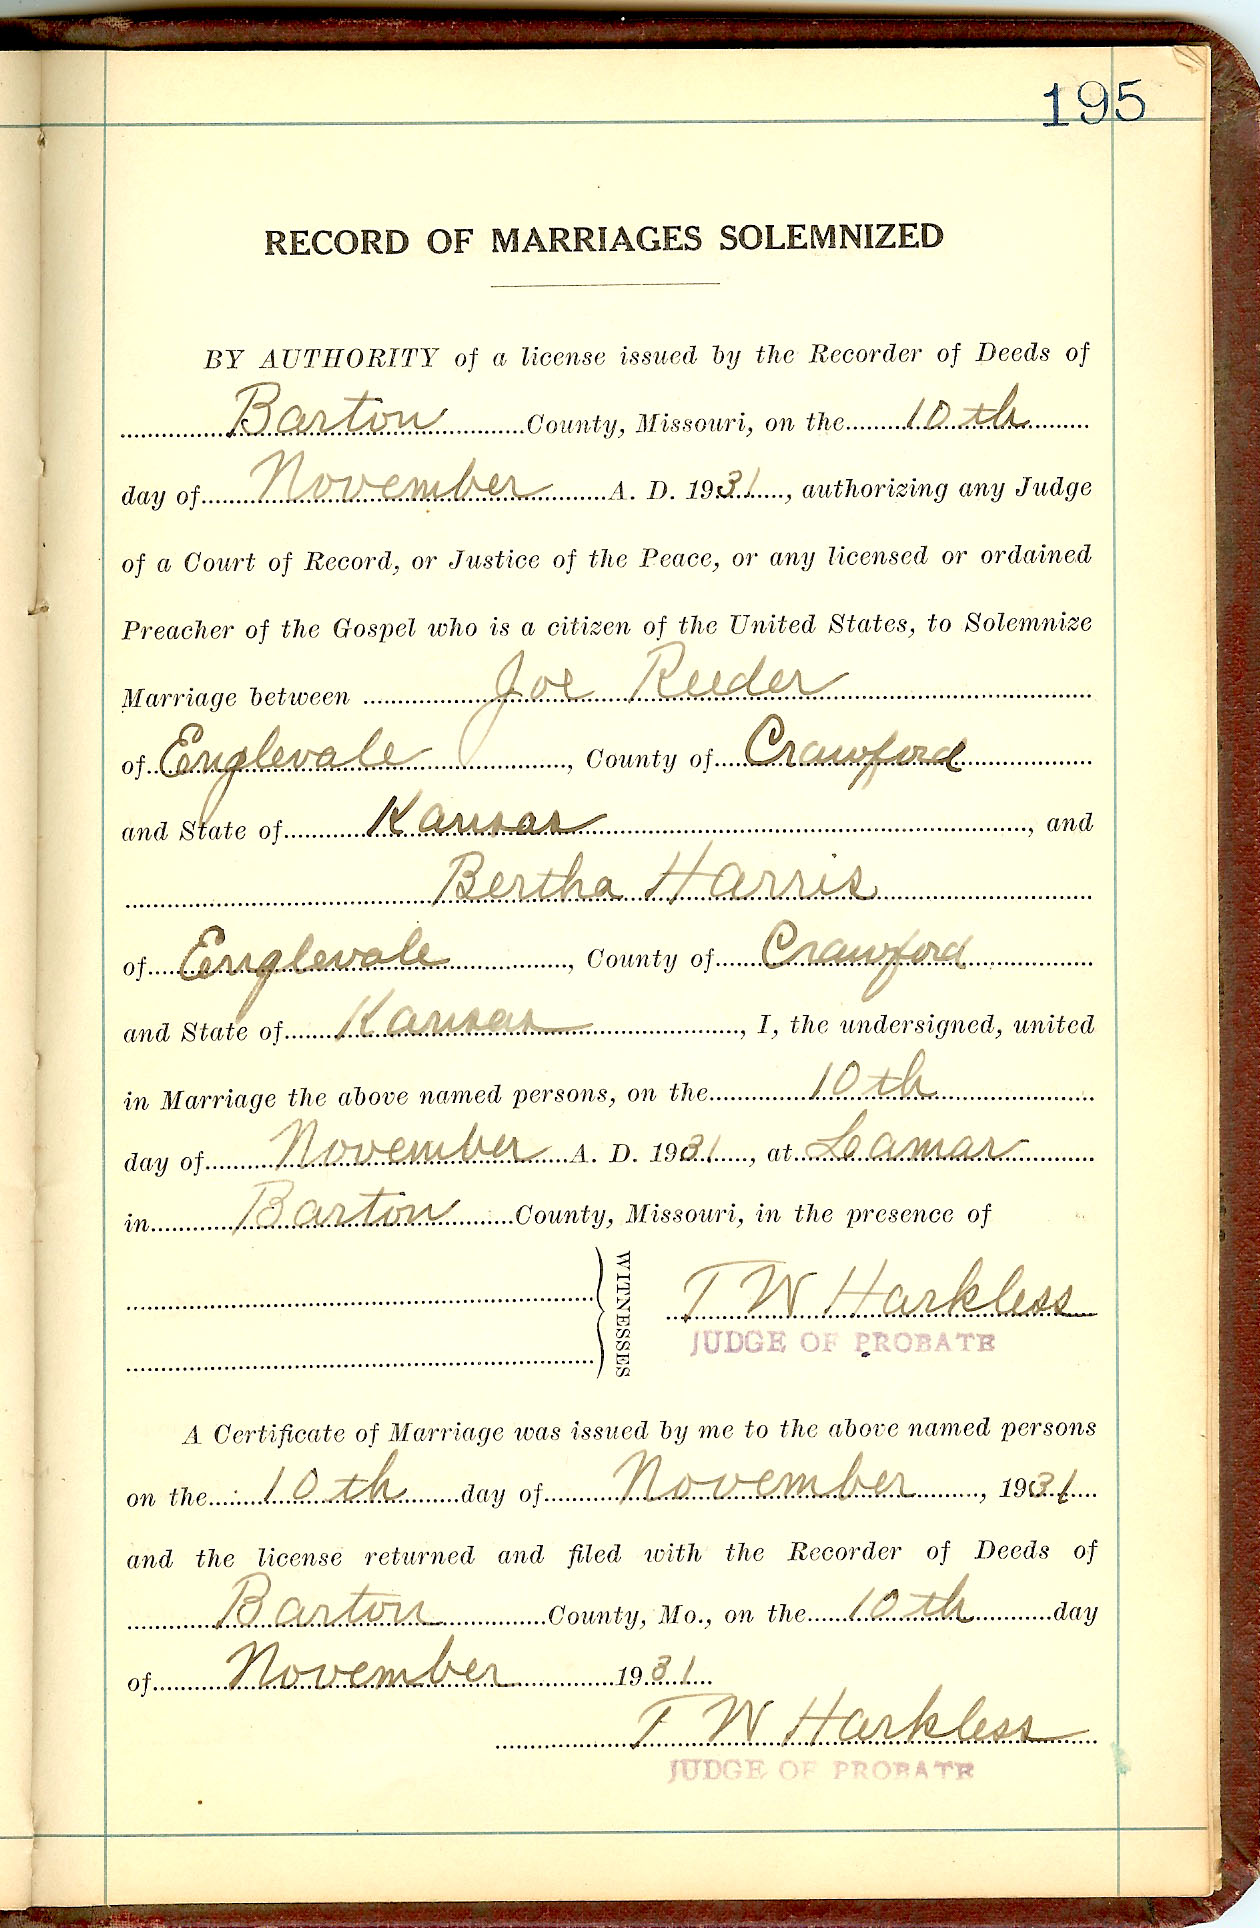 195
RECORD OF MARRIAGES SOLEMNIZED
BY AUTHORITY of a license issued by the Recorder of Deeds of
Barton County, Missouri, on the 10th
day of November A. D. 1931, authorizing any Judge
of a Court of Record, or Justice of the Peace, or any licensed or ordained
Preacher of the Gospel who is a citizen of the United States, to Solemnize
Marriage between Joe Reeder
of Englevale, County of Crawford
and State of Kansas, and
Bertha Harris
of Englevale, County of Crawford
and State of Kansas, I, the undersigned, united
in Marriage the above named persons, on the 10th
day of November A. D. 1931, at Lamar
in Barton County, Missouri, in the presence of
WITNESSES
T W Harkless
JUDGE OF PROBATE
A Certificate of Marriage was issued by me to the above named persons
on the 10th day of November, 1931
and the license returned and filed with the Recorder of Deeds of
Barton County, Mo., on the 10th day
of November 1931
T W Harkless
JUDGE OF PROBATE